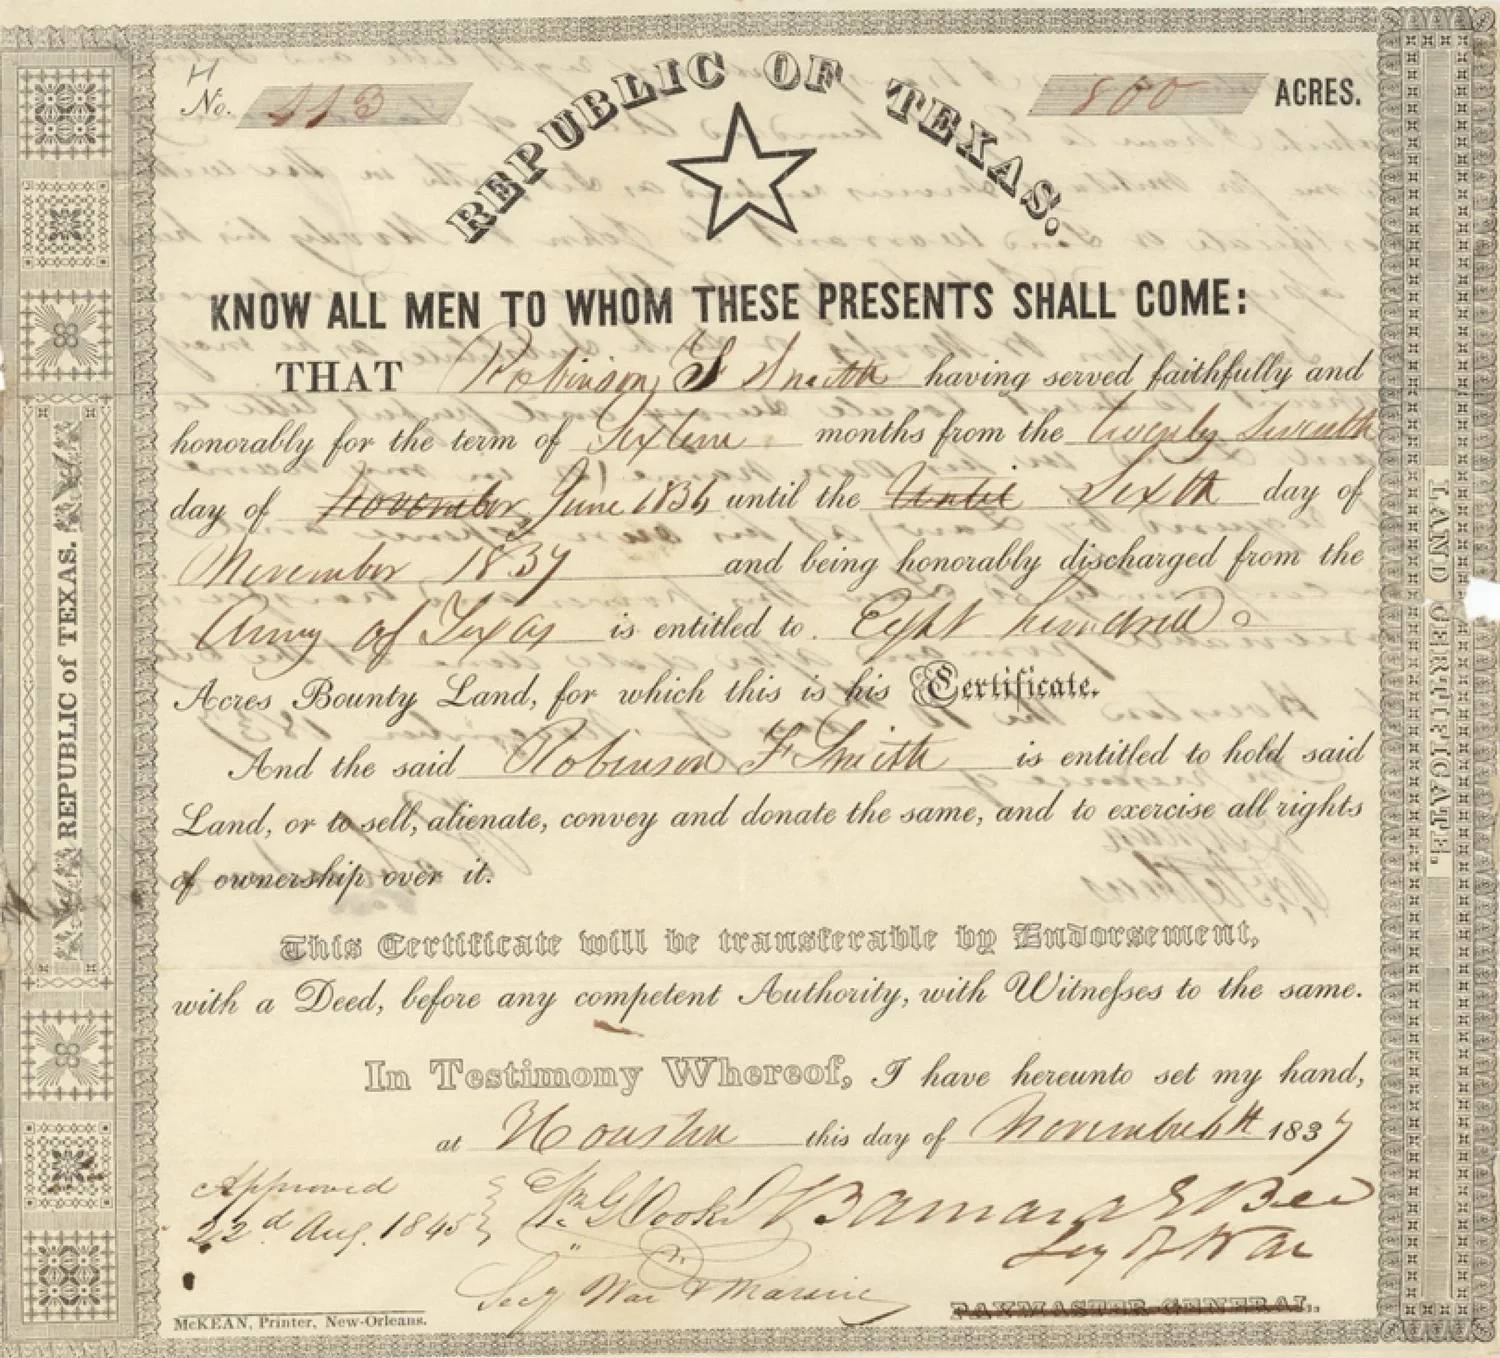 H
No. 443
REPUBLIC OF TEXAS.
800 ACRES.
KNOW ALL MEN TO WHOM THESE PRESENTS SHALL COME:
THAT Robinson F Smith having served faithfully and
honorably for the term of Sixteen months from the twenty Seventh
day of November June 1836 until the Until Sixth day of
November 1837 and being honorably discharged from the
Army of Texas is entitled to Eight hundred
Acres Bounty Land, for which this is his Certificate.
And the said Robinson F Smith is entitled to hold said
Land, or to sell, alienate, convey and donate the same, and to exercise all rights
of ownership over it.
This Certificate will be transferable by Endorsement,
with a Deed, before any competent Authority, with Witnesses to the same.
In Testimony Whereof, I have hereunto set my hand,
at Houston this day of November 6th 1837
Approved
22d Aug. 1845
Wm G Cooke
Secy War & Marine
Barnard E Bee
Secy of War
PAYMASTER GENERAL.
McKEAN, Printer, New-Orleans.
REPUBLIC of TEXAS.
LAND CERTIFICATE.